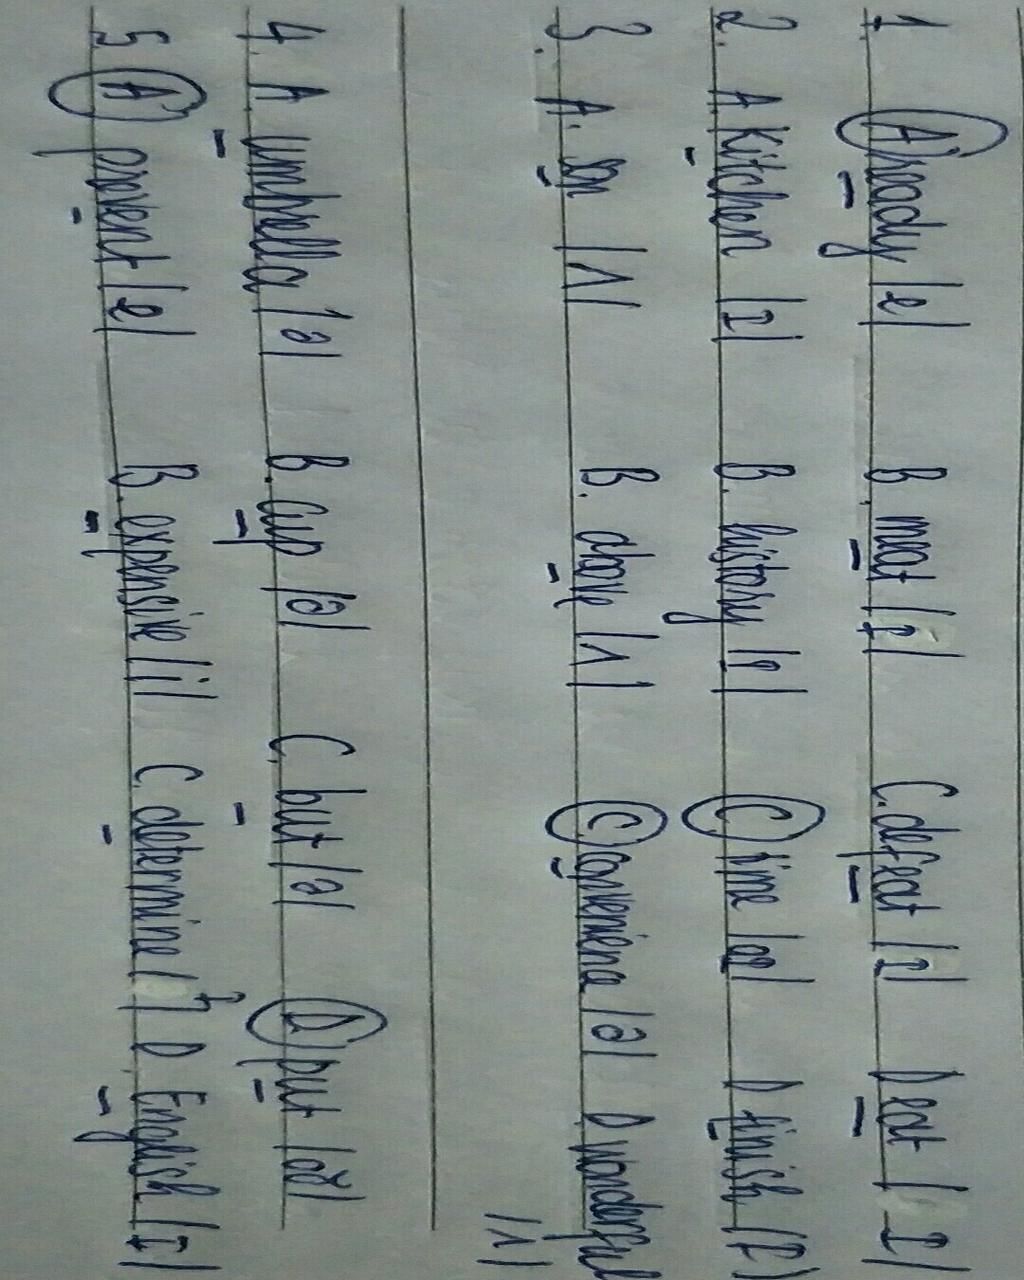 1. A ready /e/ B. meat /I/ C. defeat /I/ D eat / I/
2. A Kitchen /I/ B. history /I/ C time /ae/ D finish /I/
3. A. son /ʌ/ B. dove /ʌ/ C convenience /ə/ D wonderful
/ʌ/
4. A umbrella /ə/ B. cup /ə/ C. but /ə/ D put
5. A prevent /e/ B. expensive /i/ C. determine D. English /I/